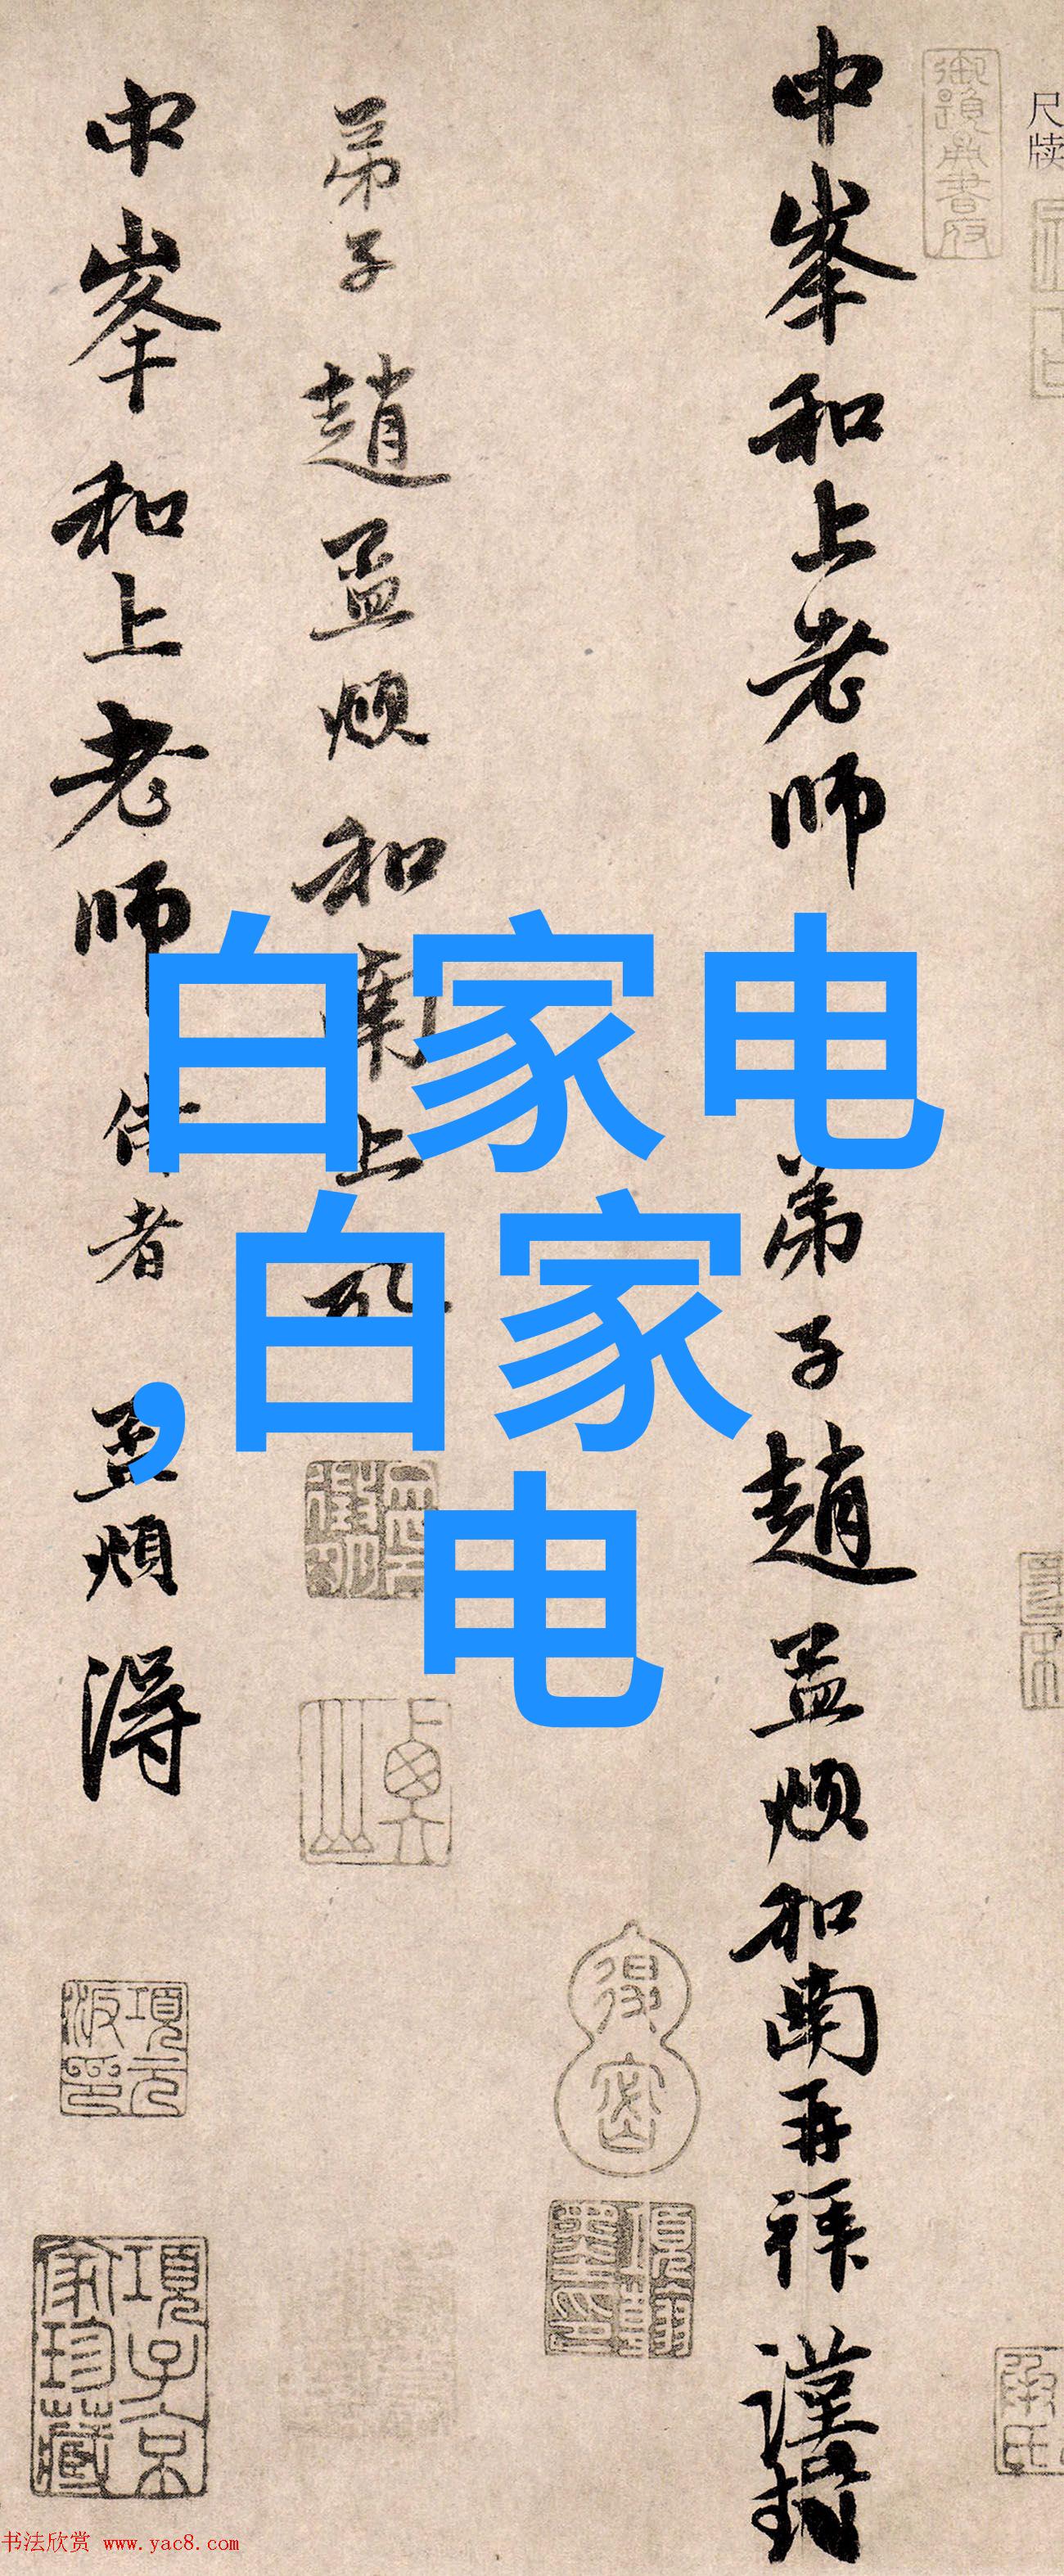 尺牍
中峯和上老师
弟子趙孟頫和南再拜謹封
弟子趙孟頫和南上
中峯和上老师侍者 孟頫
白家电
,白家
电
項子京
家珍藏
书法欣赏 www.yac8.com